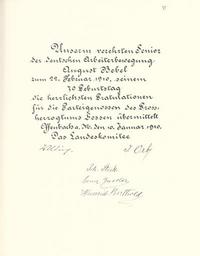 Unserm verehrten Senior
der deutschen Arbeiterbewegung
August Bebel
zum 22. Februar 1910, seinem
70 Geburtstag
die herzlichsten Gratulationen
für die Parteigenossen des Gross-
herzogtums Hessen übermittelt
Offenbach a. M. den 10. Januar 1910.
Das Landeskomitee